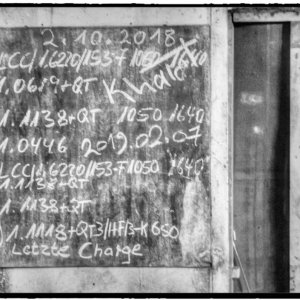 2.10.2018
LCC/1.6220/153-F 1050 1640
1.0619+QT Khalet
1.1138+QT 1050 1640
1.0446 2019.02.07
LCC/1.6220/153-F 1050 1640
1.1138+QT
1.1138+QT
1.1118+QT3/HF3-K 650
Letzte Charge